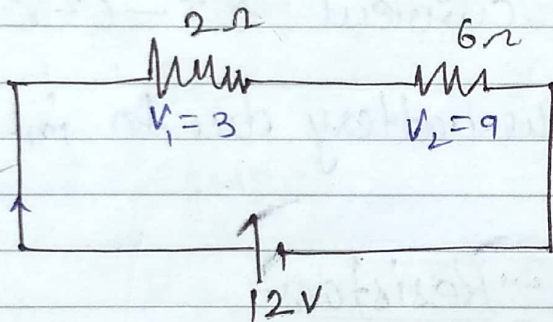 2Ω 6Ω
V₁ = 3 V₂ = 9
12V